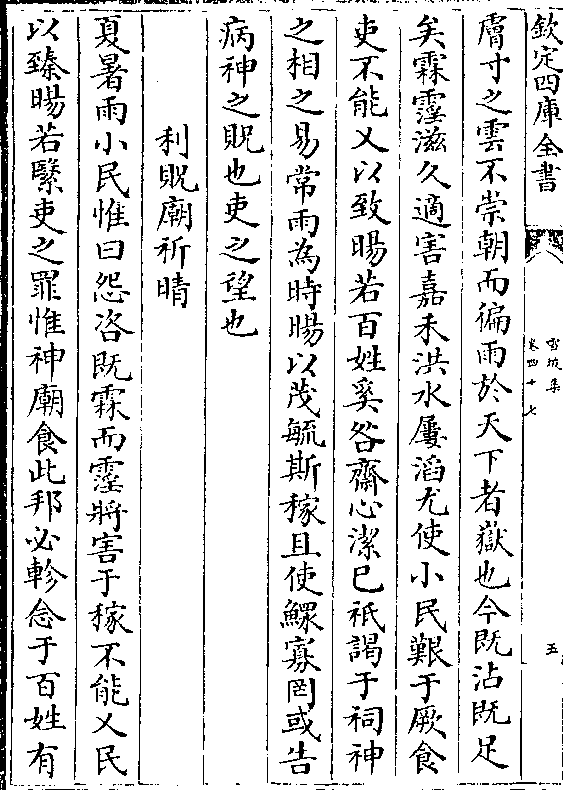 欽定四庫全書
雪坡集
卷四十七
五
膚寸之雲不崇朝而徧雨於天下者嶽也今既沾既足
矣霖霪滋久適害嘉禾洪水屢滔尤使小民艱于厥食
吏不能乂以致暘若百姓奚咎齋心潔已祇謁于祠神
之相之易常雨為時暘以茂毓斯稼且使鰥寡罔或告
病神之貺也吏之望也
利貺廟祈晴
夏暑雨小民惟曰怨咨既霖而霪將害于稼不能乂民
以臻暘若繄吏之罪惟神廟食此邦必軫念于百姓有